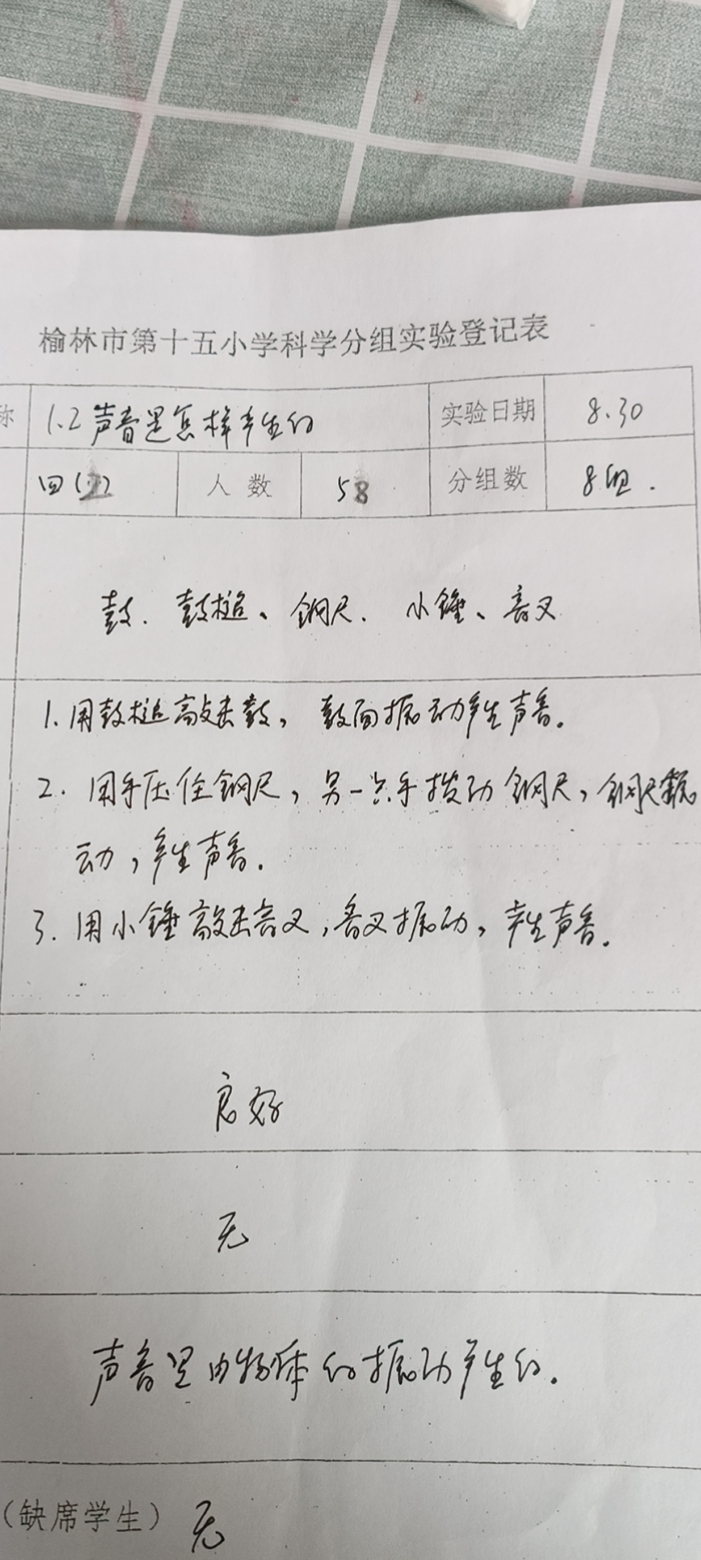 榆林市第十五小学科学分组实验登记表
称 1.2 声音是怎样产生的 实验日期 8.30
四( ) 人数 58 分组数 8组.
鼓. 鼓槌、钢尺. 小锤、音叉
1. 用鼓槌敲击鼓, 鼓面振动产生声音。
2. 用手压住钢尺, 另一只手拨动钢尺, 钢尺振
动, 产生声音.
3. 用小锤敲击音叉, 音叉振动, 产生声音.
良好
无
声音是由物体的振动产生的.
(缺席学生) 无